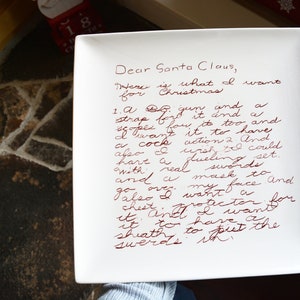 Dear Santa Claus,
Here is what I want
for Christmas
1. A BB gun and a
strap for it and a
scope for it too and
I want it to have
a cock action 2 And
also I wish I could
have a fueling set.
With real swords
and a mask to
go over my face and
also I want a
chest protector for
it. And I want
it to have a
sheath to put the
swerds in.
18